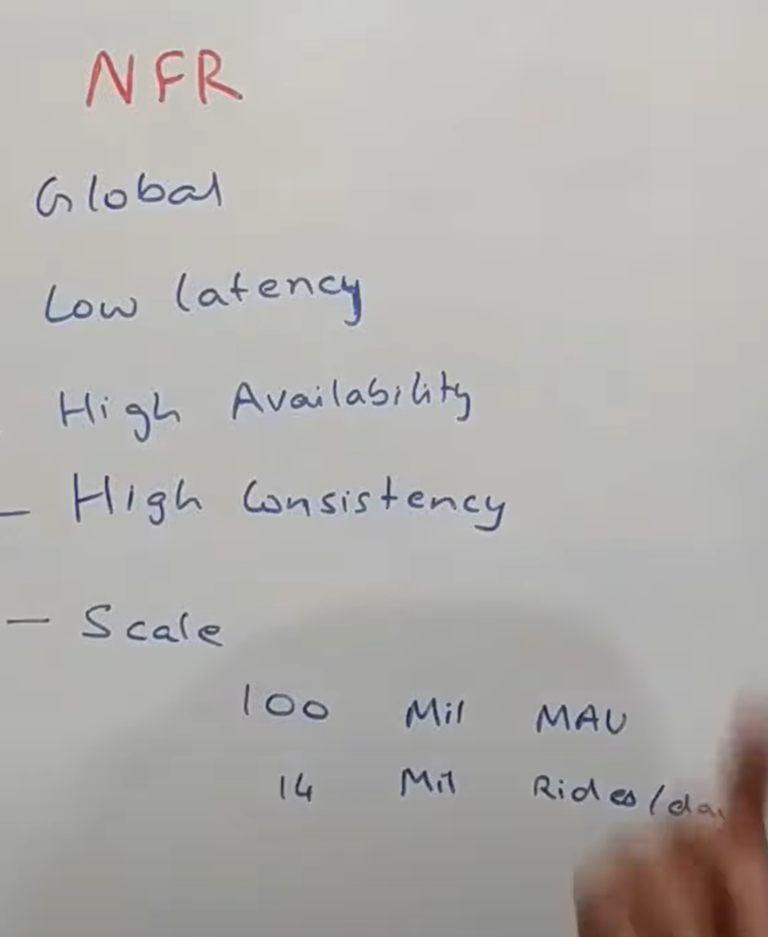 NFR
Global
Low latency
High Availability
- High Consistency
- Scale
100 Mil MAU
14 Mil Rides/da